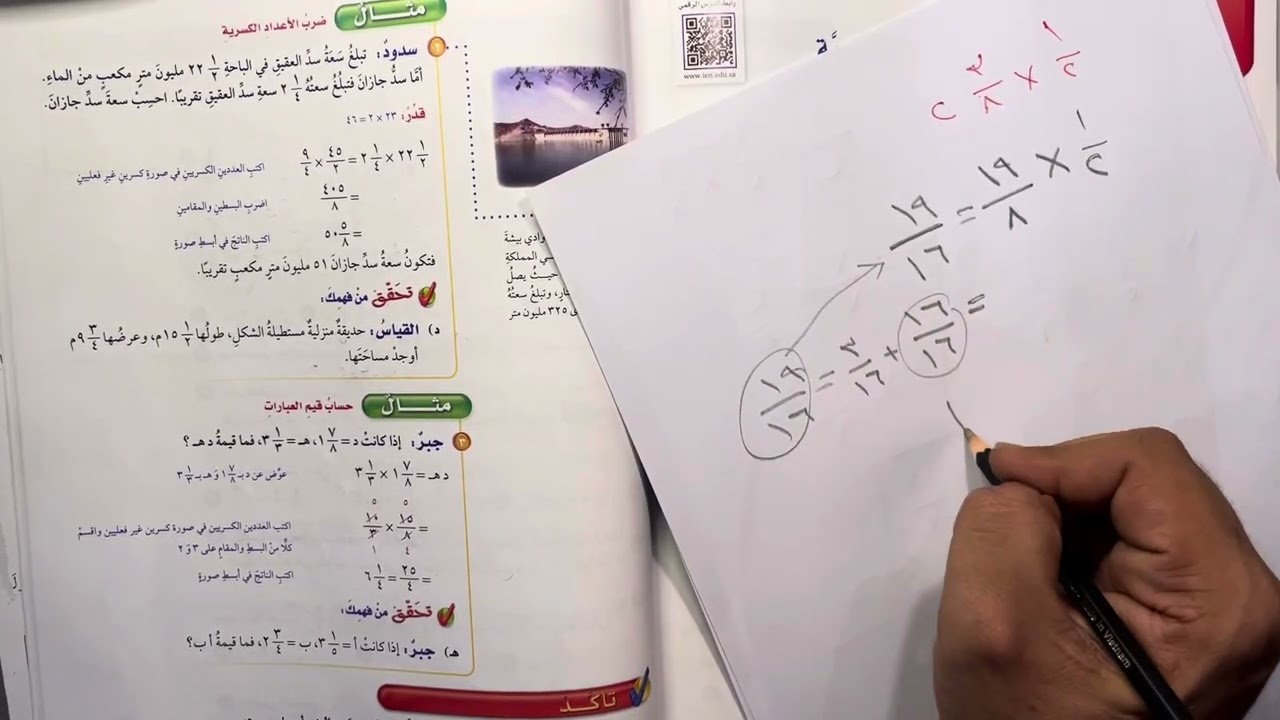 مثال
ضربُ الأعدادِ الكسريةِ
٢ سدودٌ: تبلغُ سَعَةُ سدِّ العقيقِ في الباحةِ ٢٢ ١/٢ مليونَ مترٍ مكعبٍ منَ الماءِ.
أمّا سدُّ جازانَ فتبلُغُ سعتُهُ ٢ ١/٤ سعةِ سدِّ العقيقِ تقريبًا. احسِبْ سعةَ سدِّ جازانَ.
قدِّرْ: ٢٣ × ٢ = ٤٦
٢٢ ١/٢ × ٢ ١/٤ = ٤٥/٢ × ٩/٤ اكتبِ العددينِ الكسريينِ في صورةِ كسرينِ غيرِ فعليينِ
= ٤٠٥/٨ اضربِ البسطينِ والمقامينِ
= ٥٠ ٥/٨ اكتبِ الناتجَ في أبسطِ صورةٍ
فتكونُ سعةُ سدِّ جازانَ ٥١ مليونَ مترٍ مكعبٍ تقريبًا.
تحقَّقْ منْ فهمِكَ:
د) القياسُ: حديقةٌ منزليةٌ مستطيلةُ الشكلِ، طولُها ١٥ ١/٢م، وعرضُها ٩ ٣/٤م
أوجدْ مساحتَها.
مثال
حسابُ قيمِ العباراتِ
٣ جبرٌ: إذا كانتْ د = ١ ٧/٨، هـ = ٣ ١/٣، فما قيمةُ د هـ ؟
د هـ = ١ ٧/٨ × ٣ ١/٣ عوِّضْ عن د بـ ١ ٧/٨ وَ هـ بـ ٣ ١/٣
٥ ٥
= ١٥/٨ × ١٠/٣ اكتبِ العددين الكسريين في صورة كسرين غير فعليين واقسمْ
٤ ١ كلًّا منَ البسطِ والمقامِ على ٣ وَ ٢
= ٢٥/٤ = ٦ ١/٤ اكتبِ الناتجَ في أبسطِ صورةٍ
تحقَّقْ منْ فهمِكَ:
هـ) جبرٌ: إذا كانتْ أ = ٣ ١/٥، ب = ٢ ٣/٤، فما قيمةُ أ ب؟
تأكَّدْ
رابط الدرس الرقمي
www.ien.edu.sa
وادي بيشةَ
المملكةِ
حيثُ يصلُ
وتبلغُ سعتُهُ
٣٢٥ مليون متر
١/٢ × ٢ ٣/٨
١/٢ × ١٩/٨ = ١٩/١٦
= ١٦/١٦ + ٣/١٦ = ١٩/١٦
in Vietnam